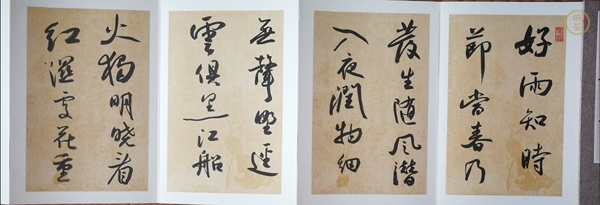 好雨知時
節當春乃
發生隨風潛
入夜潤物細
無聲野逕
雲俱黑江船
火獨明曉看
紅濕處花重